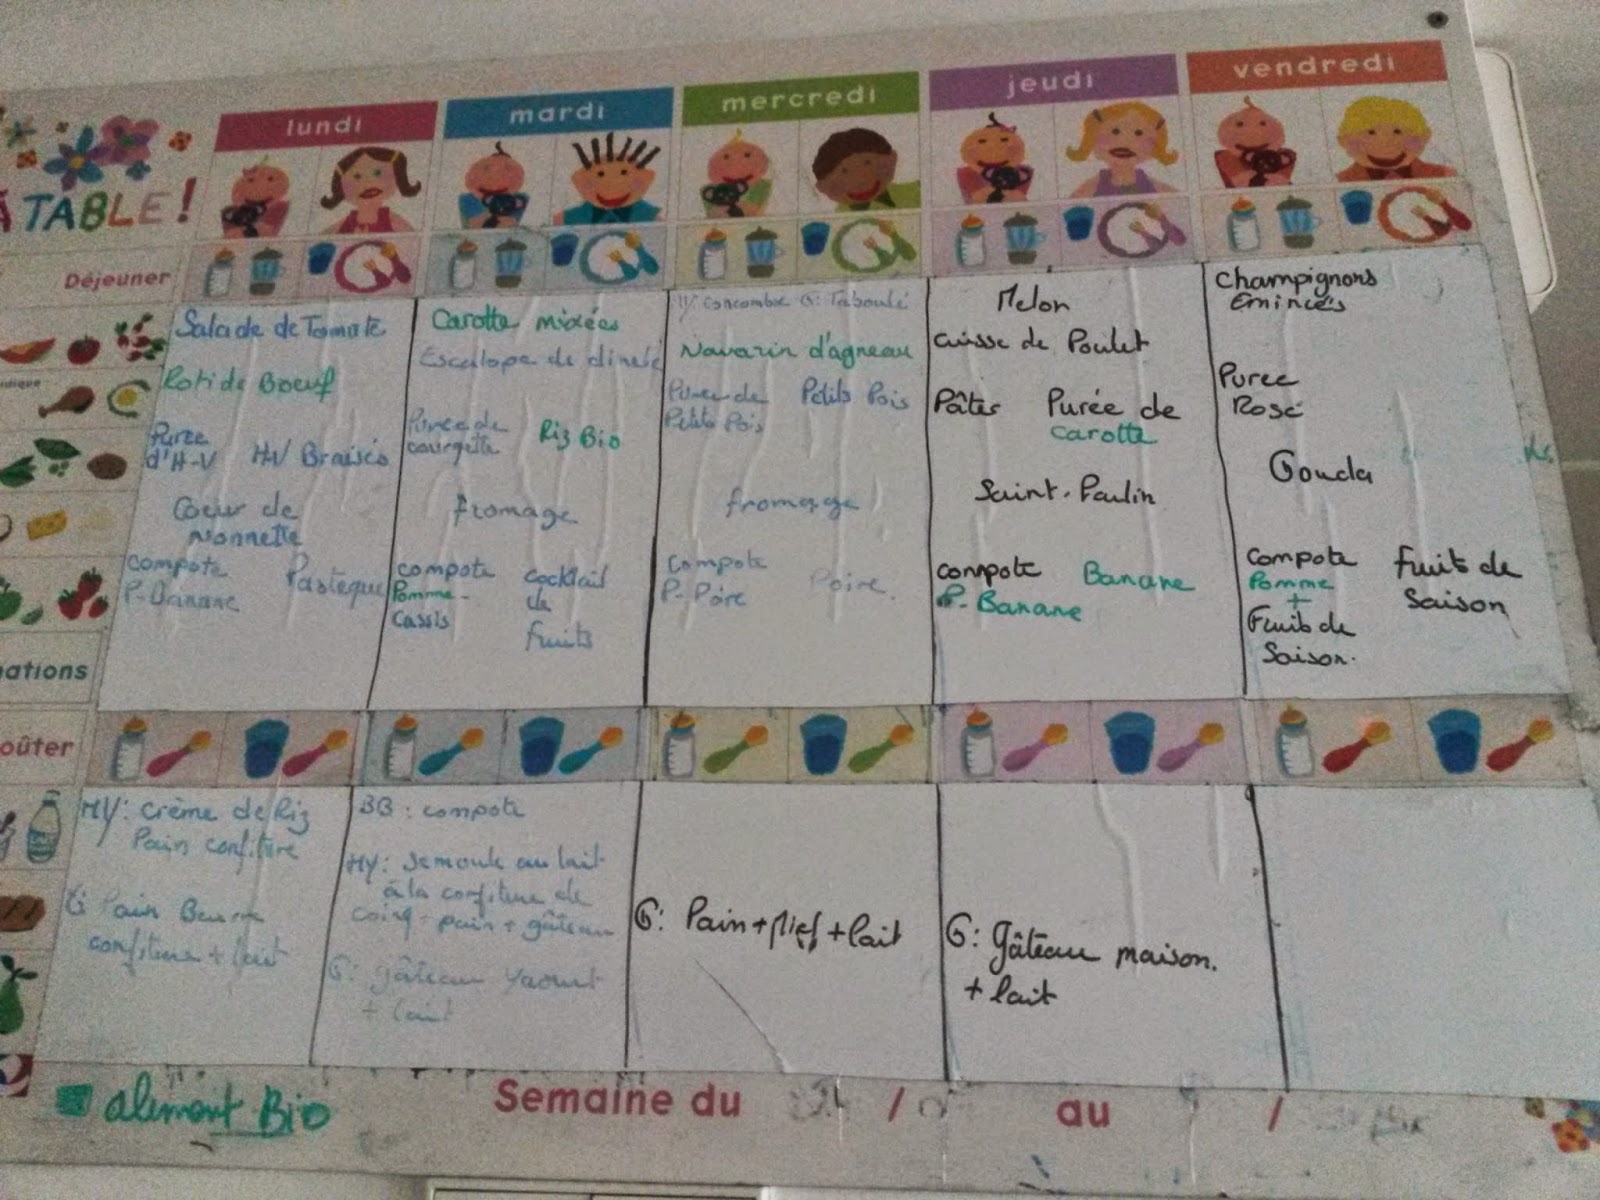 lundi
mardi
mercredi
jeudi
vendredi
À TABLE !
Déjeuner
Salade de Tomate
Roti de Boeuf
Purée
d'H-V
H-V Braisés
Coeur de
Nonnette
compote
P-Banane
Pasteque
Carotte mixées
Escalope de dinde
Purée de
courgette
Riz Bio
fromage
compote
Pomme-
Cassis
cocktail
de
fruits
concombre G: Taboulé
Navarin d'agneau
Purée de
Petits Pois
Petits Pois
fromage
Compote
P-Poire
Poire.
Melon
Cuisse de Poulet
Pâtes
Purée de
carotte
Saint-Paulin
compote
P-Banane
Banane
Champignons
Emincés
Puree
Rose
Gouda
compote
Pomme
+
Fruits de
Saison.
fruits de
Saison
ations
oûter
HY: crème de Riz
Pain confiture
G: Pain Beurre
confiture + lait
BB : compote
HY: Semoule au lait
à la confiture de
coing - pain + gâteau
G: gâteau Yaourt
+ lait
G: Pain + kiri + lait
G: gâteau maison.
+ lait
aliment Bio
Semaine du / au /